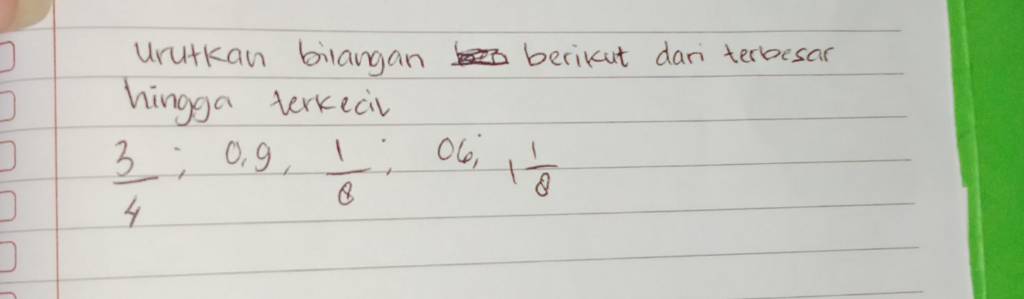 Urutkan bilangan berikut dari terbesar
hingga terkecil
3/4 ; 0,9, 1/8 ; 06; 1 1/8